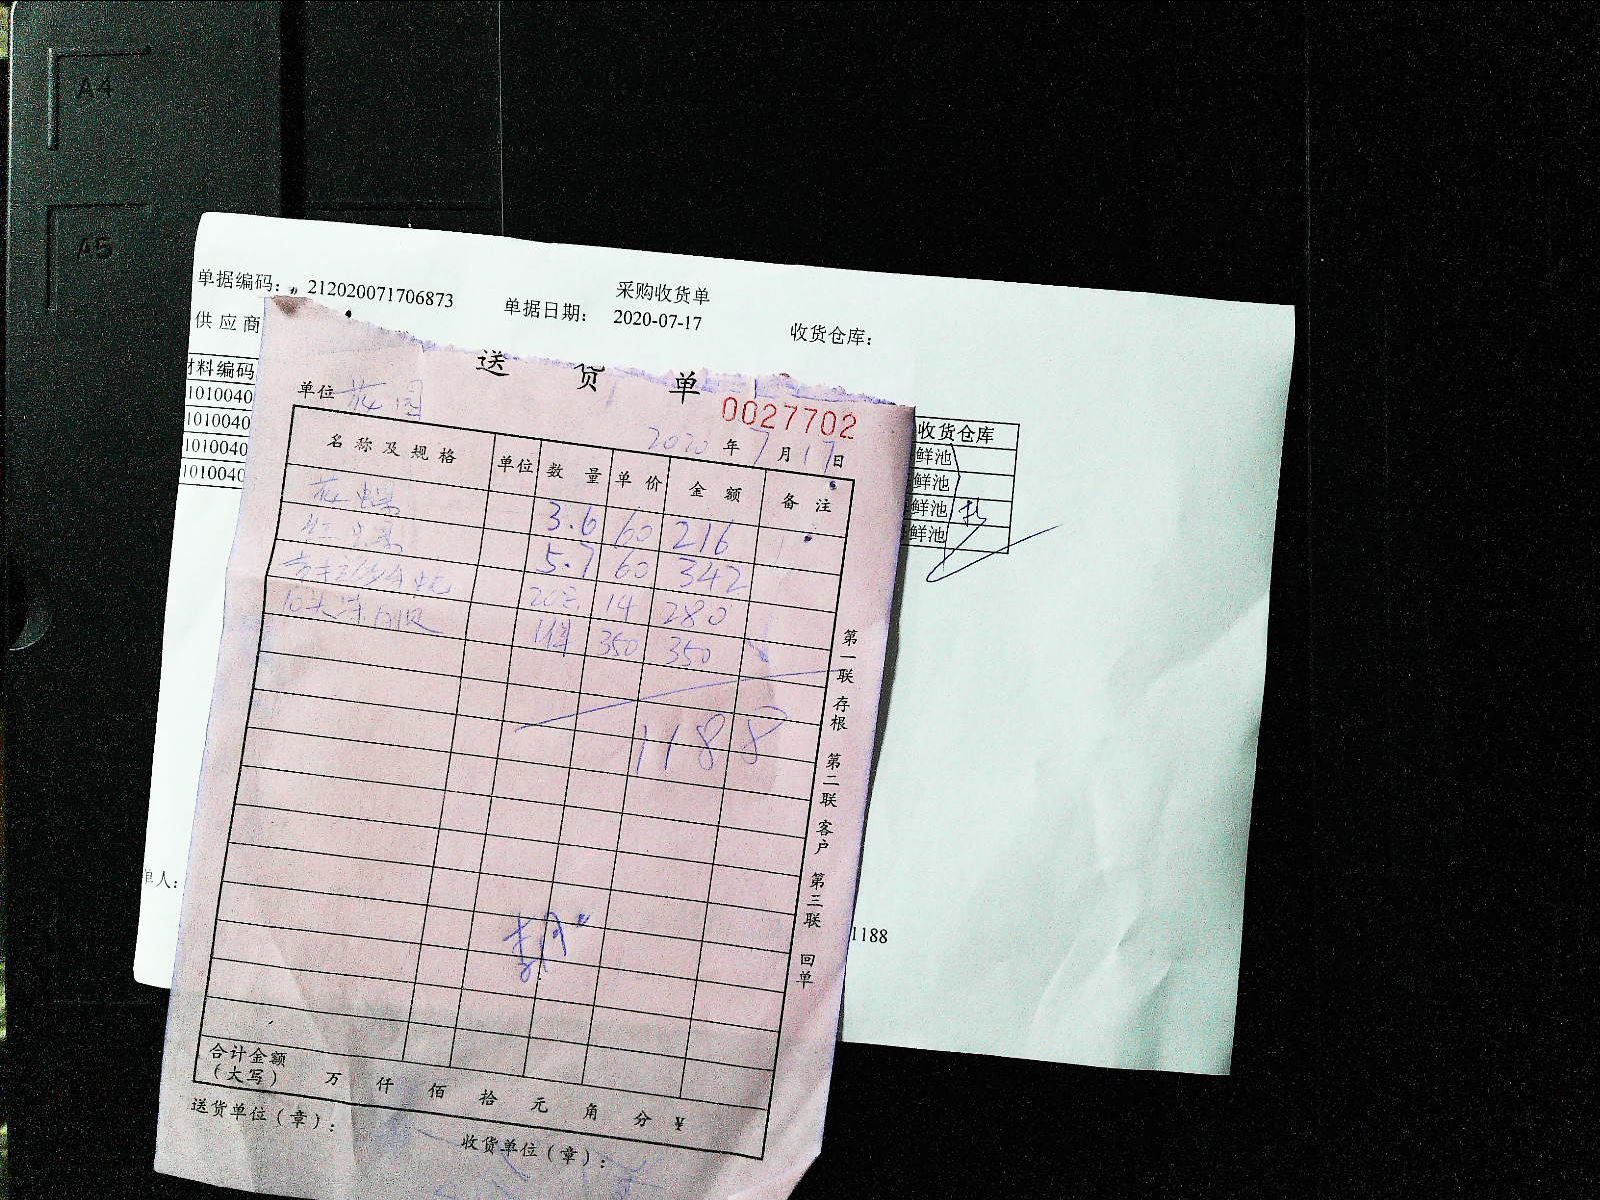 A4
A5
采购收货单
单据编码: 212020071706873 单据日期: 2020-07-17 收货仓库:
供应商
材料编码 收货仓库
1010040 鲜池
1010040 鲜池
1010040 鲜池
1010040 鲜池
单人:
1188
送货单
0027702
单位 花园
2020年7月17日
名称及规格 单位 数量 单价 金额 备注
花 3.6 60 216
红 5.7 60 342
20 14 280
1件 350 350
1188
合计金额
(大写) 万 仟 佰 拾 元 角 分 ¥
送货单位(章): 收货单位(章):
第一联 存根 第二联 客户 第三联 回单